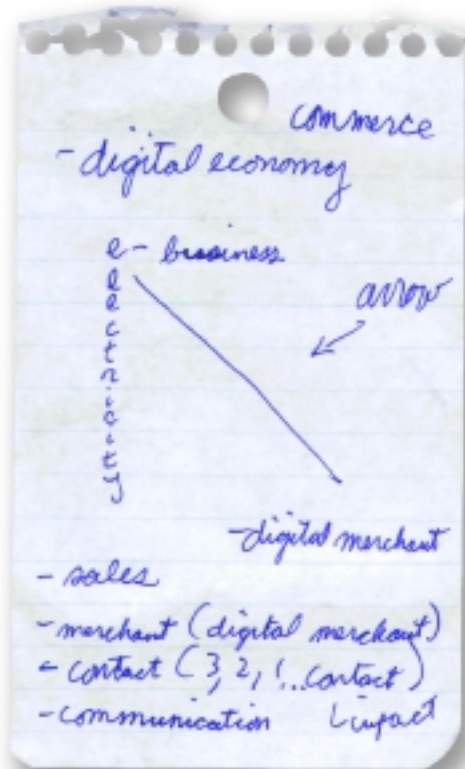 commerce
- digital economy
e - business
l
e
c
t
r
i
c
i
t
y
arrow
- digital merchant
- sales
- merchant (digital merchant)
- contact (3, 2, 1... contact)
- communication
impact